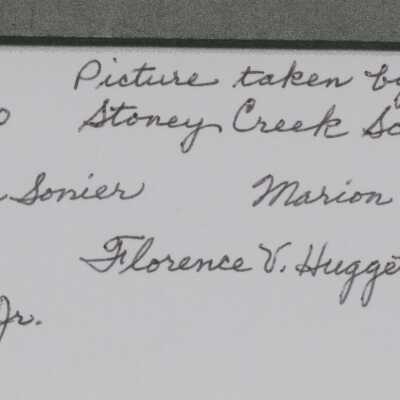 Picture taken by
Stoney Creek
Sonier Marion
Florence V.
Jr.